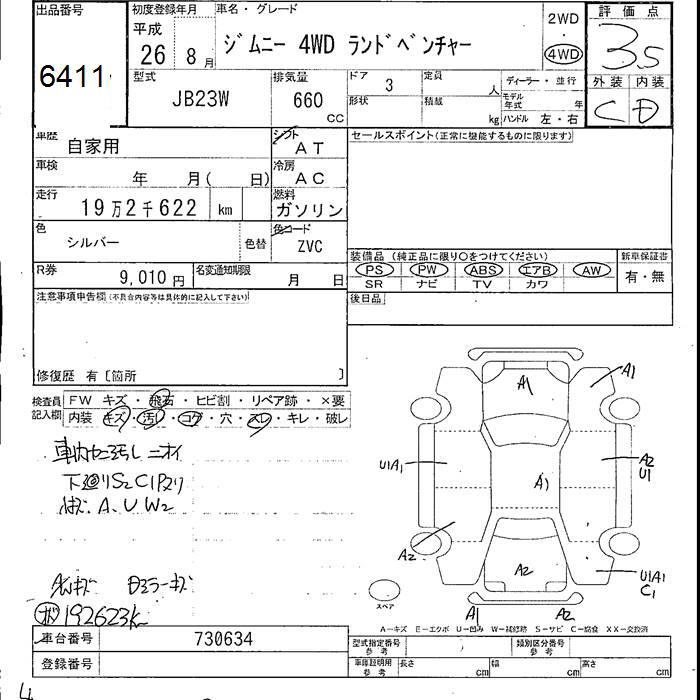 出品番号 初度登録年月 車名・グレード 2WD 評価点
6411 平成 26 8月 ジムニー 4WD ランドベンチャー ・ 4WD 3.5
型式 排気量 ドア 3 定員 人 ディーラー・並行 外装 内装
JB23W 660 CC 形状 積載 kg モデル年式 年 C D
ハンドル 左・右
車歴 自家用 シフト AT セールスポイント(正常に機能するものに限ります)
車検 年 月( 日) 冷房 AC
走行 19万2千622 km 燃料 ガソリン
色 シルバー 色替 色コード ZVC
装備品 (純正品に限り○をつけてください) 新車保証書
PS PW ABS エアB AW 有・無
SR ナビ TV カワ
R券 9,010円 名変通知期限 月 日
後日品
注意事項申告欄(不具合内容等は具体的に記入して下さい)
修復歴 有[箇所 ]
検査員記入欄 FW キズ・飛石・ヒビ割・リペア跡・×要
内装 キズ・汚し・コゲ・穴・スレ・キレ・破レ
ニオイ
下廻りS2C1
A.U W2
192623k
A1
A1
U1A1
A1
A2
U1
A2
A2
U1A1
C1
A1 A2
スペア
A―キズ E―エクボ U―凹み W―補修跡 S―サビ C―腐食 XX―交換済
車台番号 730634 型式指定番号 参考 類別区分番号 参考
登録番号 車庫証明用 参考 長さ cm 幅 cm 高さ cm